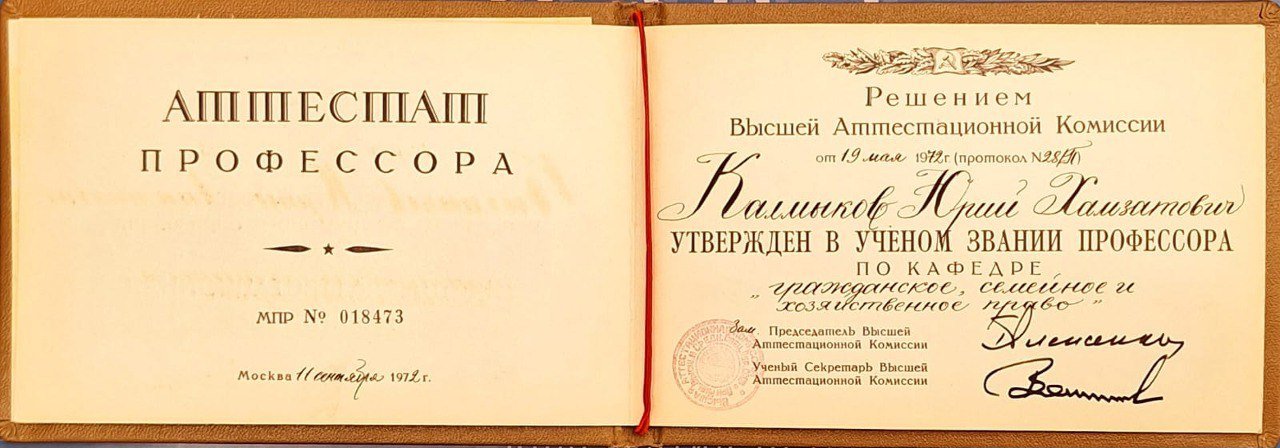 АТТЕСТАТ
ПРОФЕССОРА
МПР № 018473
Москва 11 сентября 1972 г.
Решением
Высшей Аттестационной Комиссии
от 19 мая 1972 г. (протокол № 28/П)
Калмыков Юрий Хамзатович
УТВЕРЖДЕН В УЧЕНОМ ЗВАНИИ ПРОФЕССОРА
ПО КАФЕДРЕ
„гражданское, семейное и
хозяйственное право"
Зам. Председатель Высшей
Аттестационной Комиссии
Ученый Секретарь Высшей
Аттестационной Комиссии